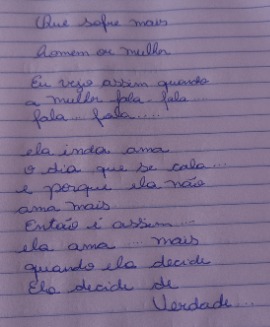 Que sofre mais
homem ou mulher
Eu vejo assim quando
a mulher fala. fala
fala.... fala....
ela inda ama
o dia que se cala...
e porque ela não
ama mais
Então é assim....
ela ama .... mais
quando ela decide
Ela decide de
Verdade....